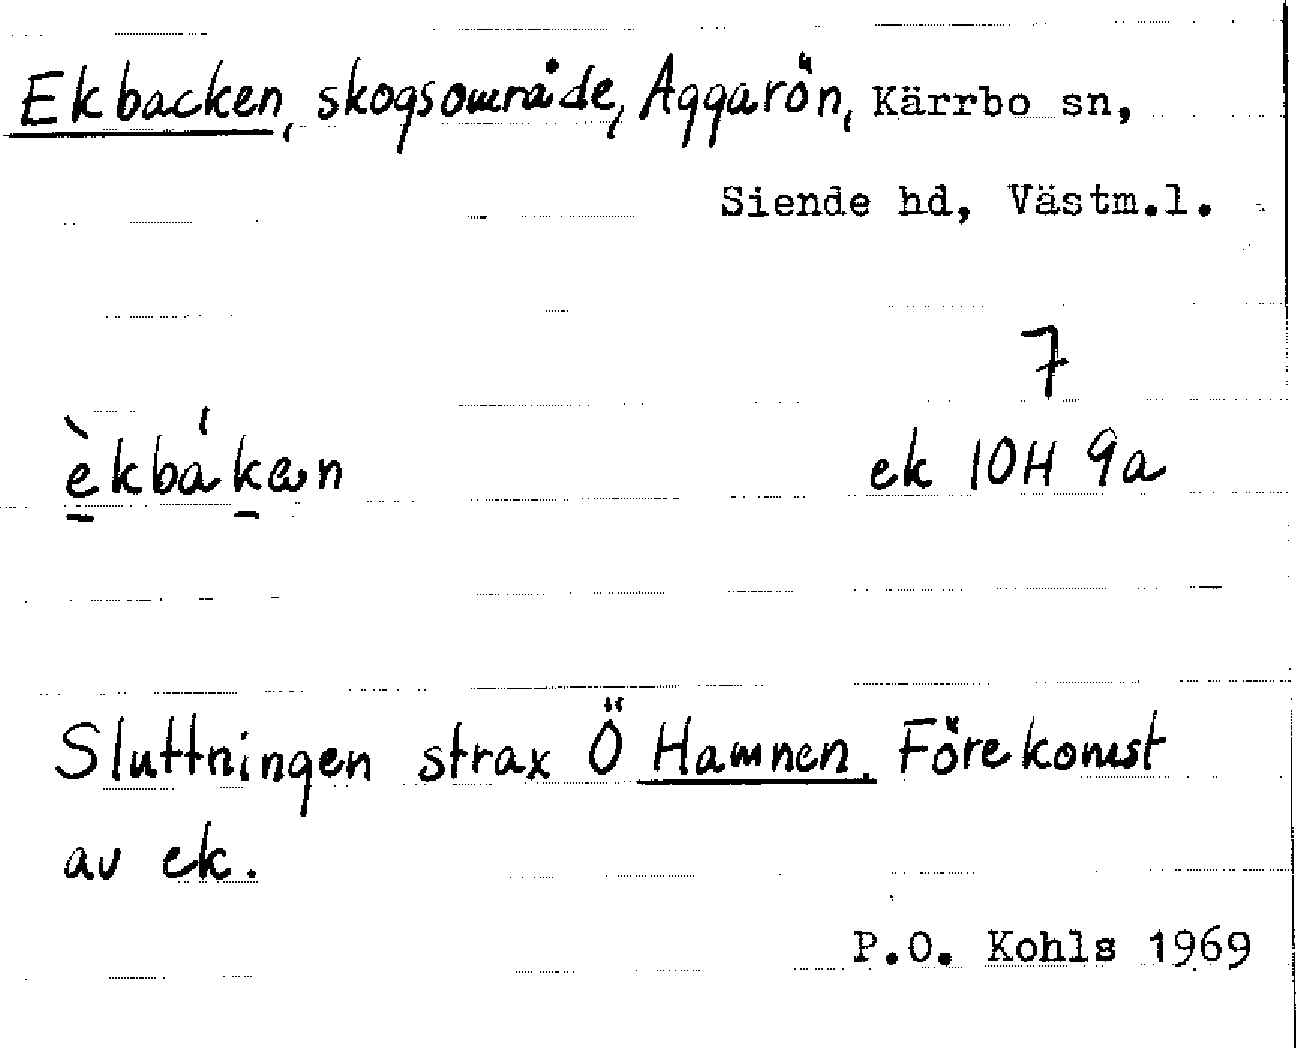 Ekbacken, skogsområde, Aggarön, Kärrbo sn,
Siende hd, Västm.l.
7
èkbákan ek 10H 9a
Sluttningen strax Ö Hamnen. Förekomst
av ek.
P.O. Kohls 1969